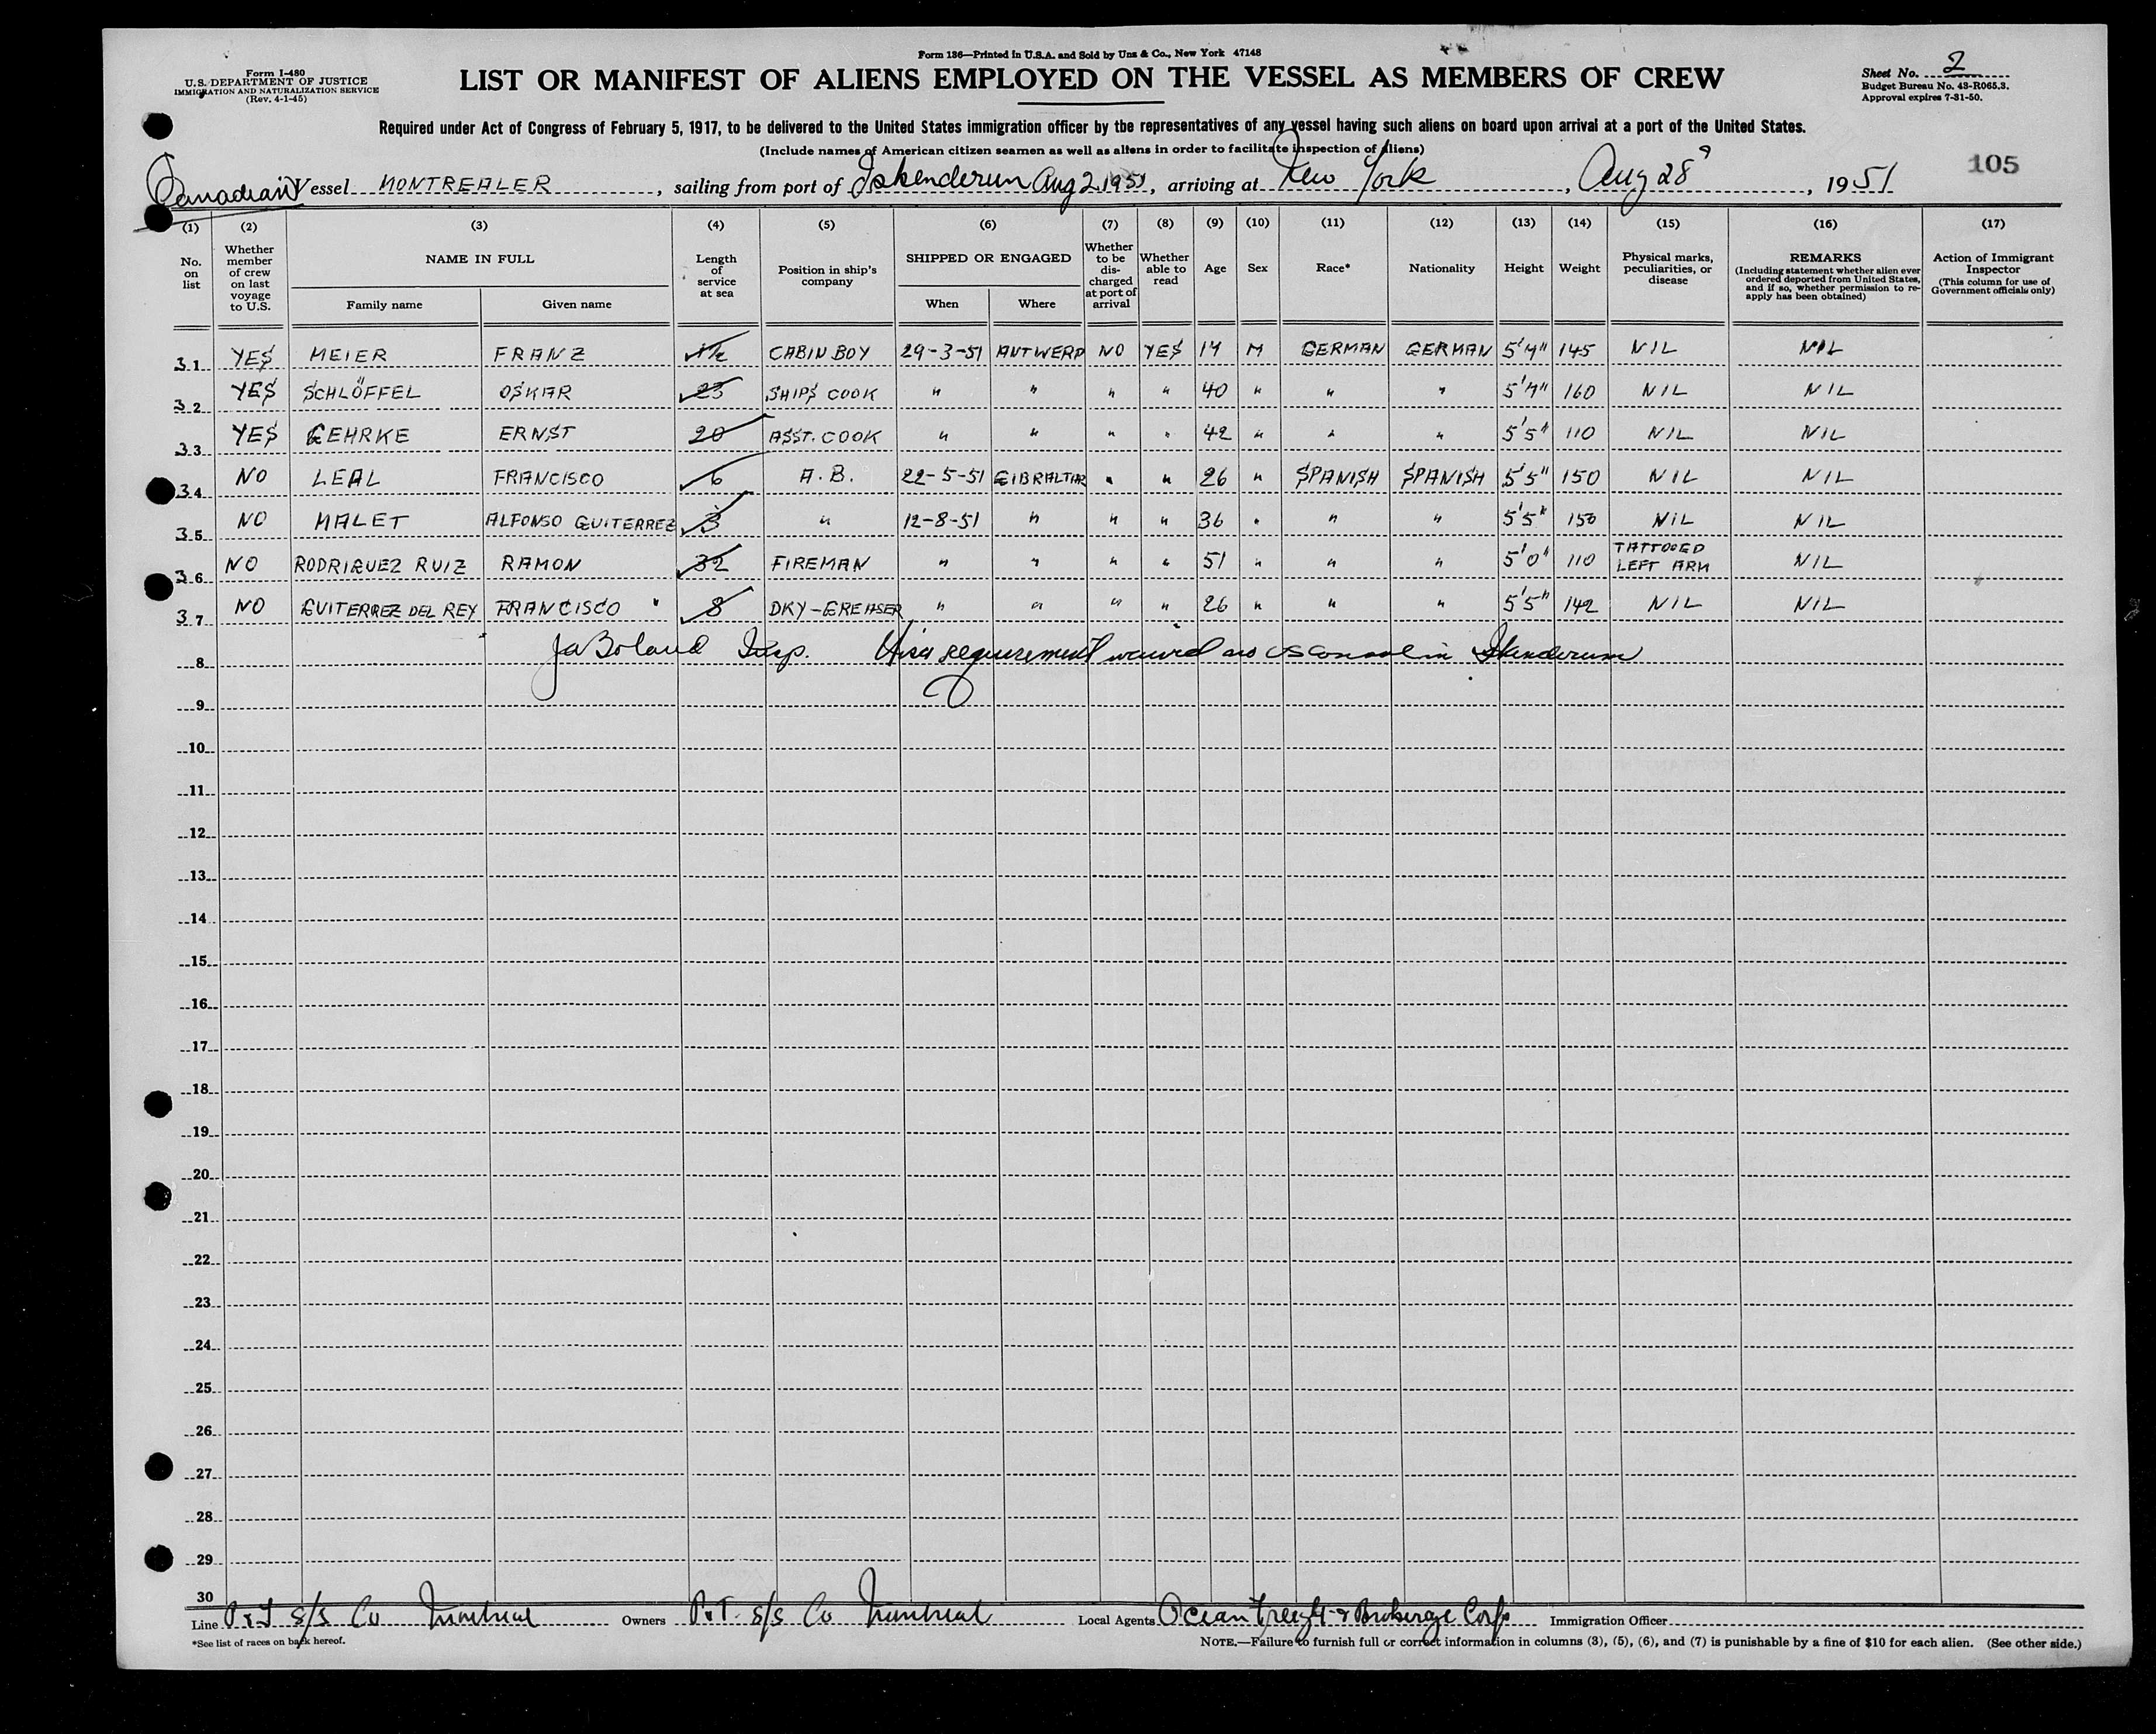 Form 136—Printed in U.S.A. and Sold by Unz & Co., New York 47148
Form I-480
U.S. DEPARTMENT OF JUSTICE
IMMIGRATION AND NATURALIZATION SERVICE
(Rev. 4-1-45)
LIST OR MANIFEST OF ALIENS EMPLOYED ON THE VESSEL AS MEMBERS OF CREW
Sheet No. 2
Budget Bureau No. 43-R065.3.
Approval expires 7-31-50.
Required under Act of Congress of February 5, 1917, to be delivered to the United States immigration officer by the representatives of any vessel having such aliens on board upon arrival at a port of the United States.
(Include names of American citizen seamen as well as aliens in order to facilitate inspection of aliens)
105
Canadian Vessel MONTREALER, sailing from port of Iskenderun Aug 2 1951, arriving at New York, Aug 28, 1951
(1) (2) (3) (4) (5) (6) (7) (8) (9) (10) (11) (12) (13) (14) (15) (16) (17)
No. on list
Whether member of crew on last voyage to U.S.
NAME IN FULL
Family name Given name
Length of service at sea
Position in ship's company
SHIPPED OR ENGAGED
When Where
Whether to be discharged at port of arrival
Whether able to read
Age
Sex
Race*
Nationality
Height
Weight
Physical marks, peculiarities, or disease
REMARKS
(Including statement whether alien ever ordered deported from United States, and if so, whether permission to re-apply has been obtained)
Action of Immigrant Inspector
(This column for use of Government officials only)
31 YES MEIER FRANZ 1½ CABIN BOY 29-3-51 ANTWERP NO YES 17 M GERMAN GERMAN 5'7" 145 NIL NIL
32 YES SCHLÖFFEL OSKAR 23 SHIPS COOK " " " " 40 " " " 5'7" 160 NIL NIL
33 YES GEHRKE ERNST 20 ASST. COOK " " " " 42 " " " 5'5" 110 NIL NIL
34 NO LEAL FRANCISCO 6 A.B. 22-5-51 GIBRALTAR " " 26 " SPANISH SPANISH 5'5" 150 NIL NIL
35 NO MALET ALFONSO GUITERREZ 3 " 12-8-51 " " " 36 " " " 5'5" 150 NIL NIL
36 NO RODRIGUEZ RUIZ RAMON 32 FIREMAN " " " " 51 " " " 5'0" 110 TATTOOED LEFT ARM NIL
37 NO GUITERREZ DEL REY FRANCISCO " 8 DKY-GREASER " " " " 26 " " " 5'5" 142 NIL NIL
8 Ja Boland Insp. Visa requirement waived no US Consul in Iskenderun
9
10
11
12
13
14
15
16
17
18
19
20
21
22
23
24
25
26
27
28
29
30
Line P & T S/S Co Montreal Owners P & T S/S Co Montreal Local Agents Ocean Freight & Brokerage Corp Immigration Officer
*See list of races on back hereof.
NOTE.—Failure to furnish full or correct information in columns (3), (5), (6), and (7) is punishable by a fine of $10 for each alien. (See other side.)